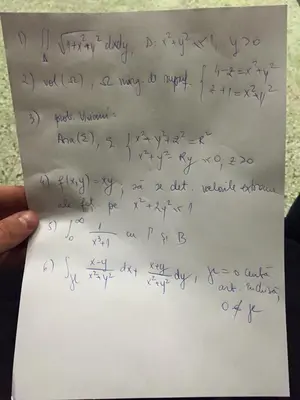 1) ∬_D √(1+x²+y²) dxdy, D: x²+y² < 1, y>0
2) vol(Ω), Ω marg. de supraf. { 4-z = x²+y²
z+1 = x²+y²
3) prob.
Aria(Σ), Σ { x²+y²+z² = R²
x²+y² Ry < 0, z>0
4) f(x,y) = xy, să se det. valorile extreme
ale f pe x²+2y² < 1
5) ∫_0^∞ 1/(x³+1) cu Γ și B
6) ∫ (x-y)/(x²+y²) dx + (x+y)/(x²+y²) dy, = o curbă
închisă,
0 ∉